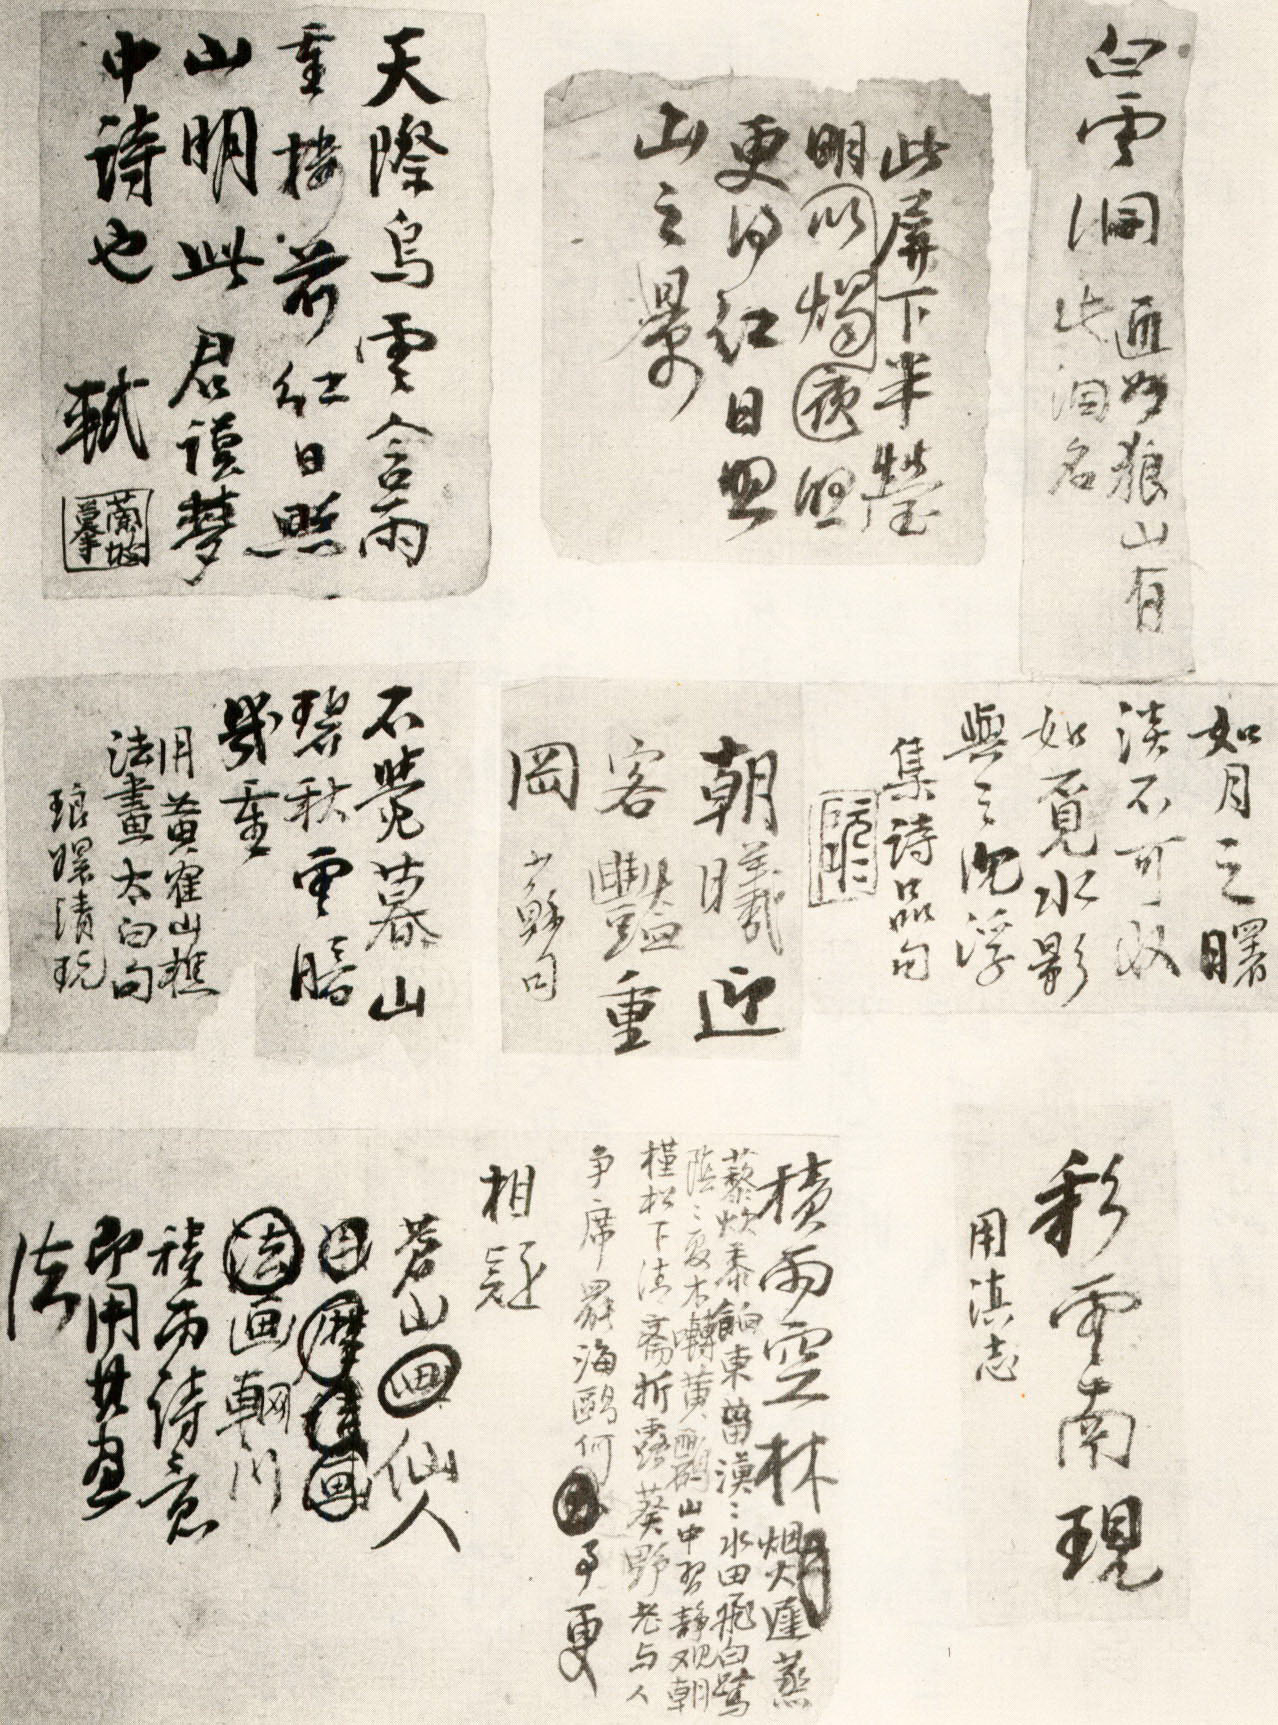 白雲洞
通州狼山有
此洞名
此屏下半瑩
明以燭夜照
更得紅日照
山之景
天際烏雲含雨
重樓前紅日照
山明此君謨夢
中詩也
軾
蘭坡
摹
如月之曙
淡不可收
如覓水影
與之沈浮
集詩品句
朝曦迎
客豔重
岡
蘇句
不覺暮山
碧秋雲暗
幾重
用黃鶴山樵
法畫太白句
琅嬛漬玩
彩雲南現
用滇志
積雨空林烟火遲蒸
藜炊黍餉東菑漠漠水田飛白鷺
陰陰夏木囀黃鸝山中習靜觀朝
槿松下清齋折露葵野老与人
爭席罷海鷗何事更
相疑
蒼山畫仙人
法画輞川
積雨詩意
即用其畫
法